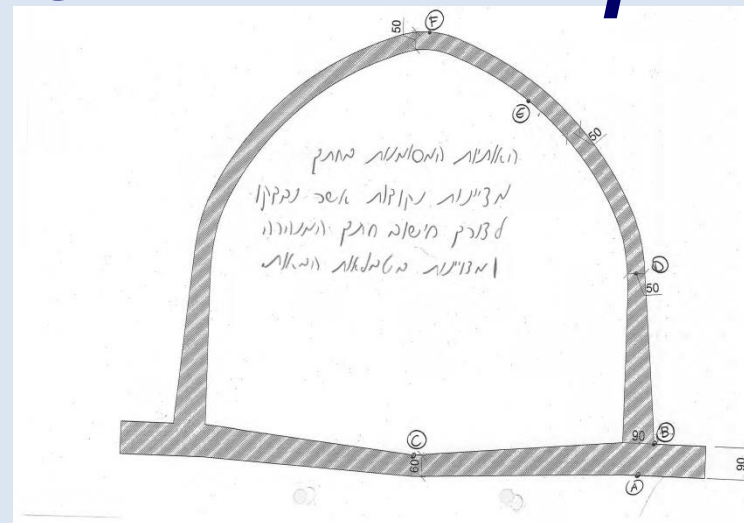 50
F
האותיות המסומנות בחתך
E
50
מציינות נקודות אשר נבדקו
לצורך חישוב חתך המנהרה
ומצויינות בטבלאות הבאות.
D
50
C
60
90
B
A
90